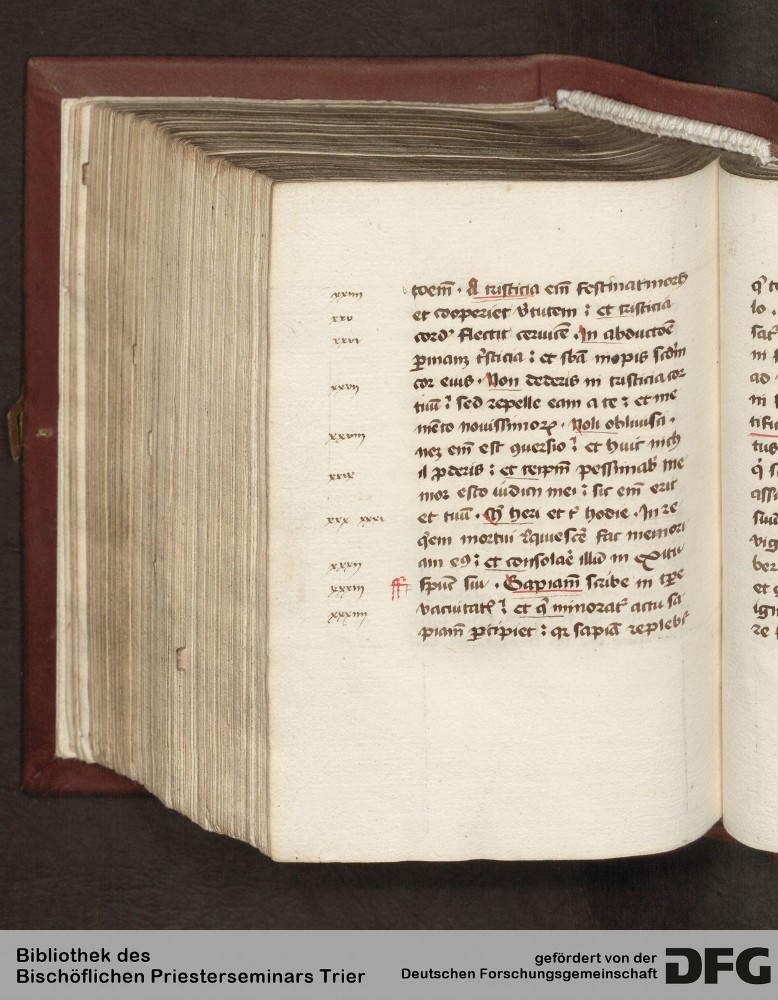 xxiiii
xxv
xxvi
xxvii
xxviii
xxix
xxx xxxi
xxxii
xxxiii
xxxiiii
coem̄ . A tristicia em̄ festinat mors
et cooperiet v̾tutem : et tristicia
cord᷒ flectit ceruicē . In abductōe
ꝑmanꝫ t̾sticia : et sb̄a inopis scd̄m
cor eius . Non dederis in tristicia cor
tuū : sed repelle eam a te : et me
mēto nouissimoꝝ . Noli obliuisci .
neꝫ em̄ est ꝯuersio : et huic nich
il ꝓderis : et teip̄m pessimab̾ me
mor esto iudicii mei : sic em̄ erit
et tuū . M̄ heri et t̾ hodie . In re
q̄em mortui r̾quiescē fac memori
am eꝰ : et consolae̾ illū in exitu
spūc sui . Sapiam̄ scribe in tp̄e
vacuitatꝭ : et q̄ minorat̾ actu sa
piam̄ ꝑcipiet : qr sapīa replebit̾
q̾ te
lo .
sat̾
in
ad
in
tifi
tus
q̾
assi
suū
vig
ber
et
ign
re
Bibliothek des
Bischöflichen Priesterseminars Trier
gefördert von der
Deutschen Forschungsgemeinschaft
DFG